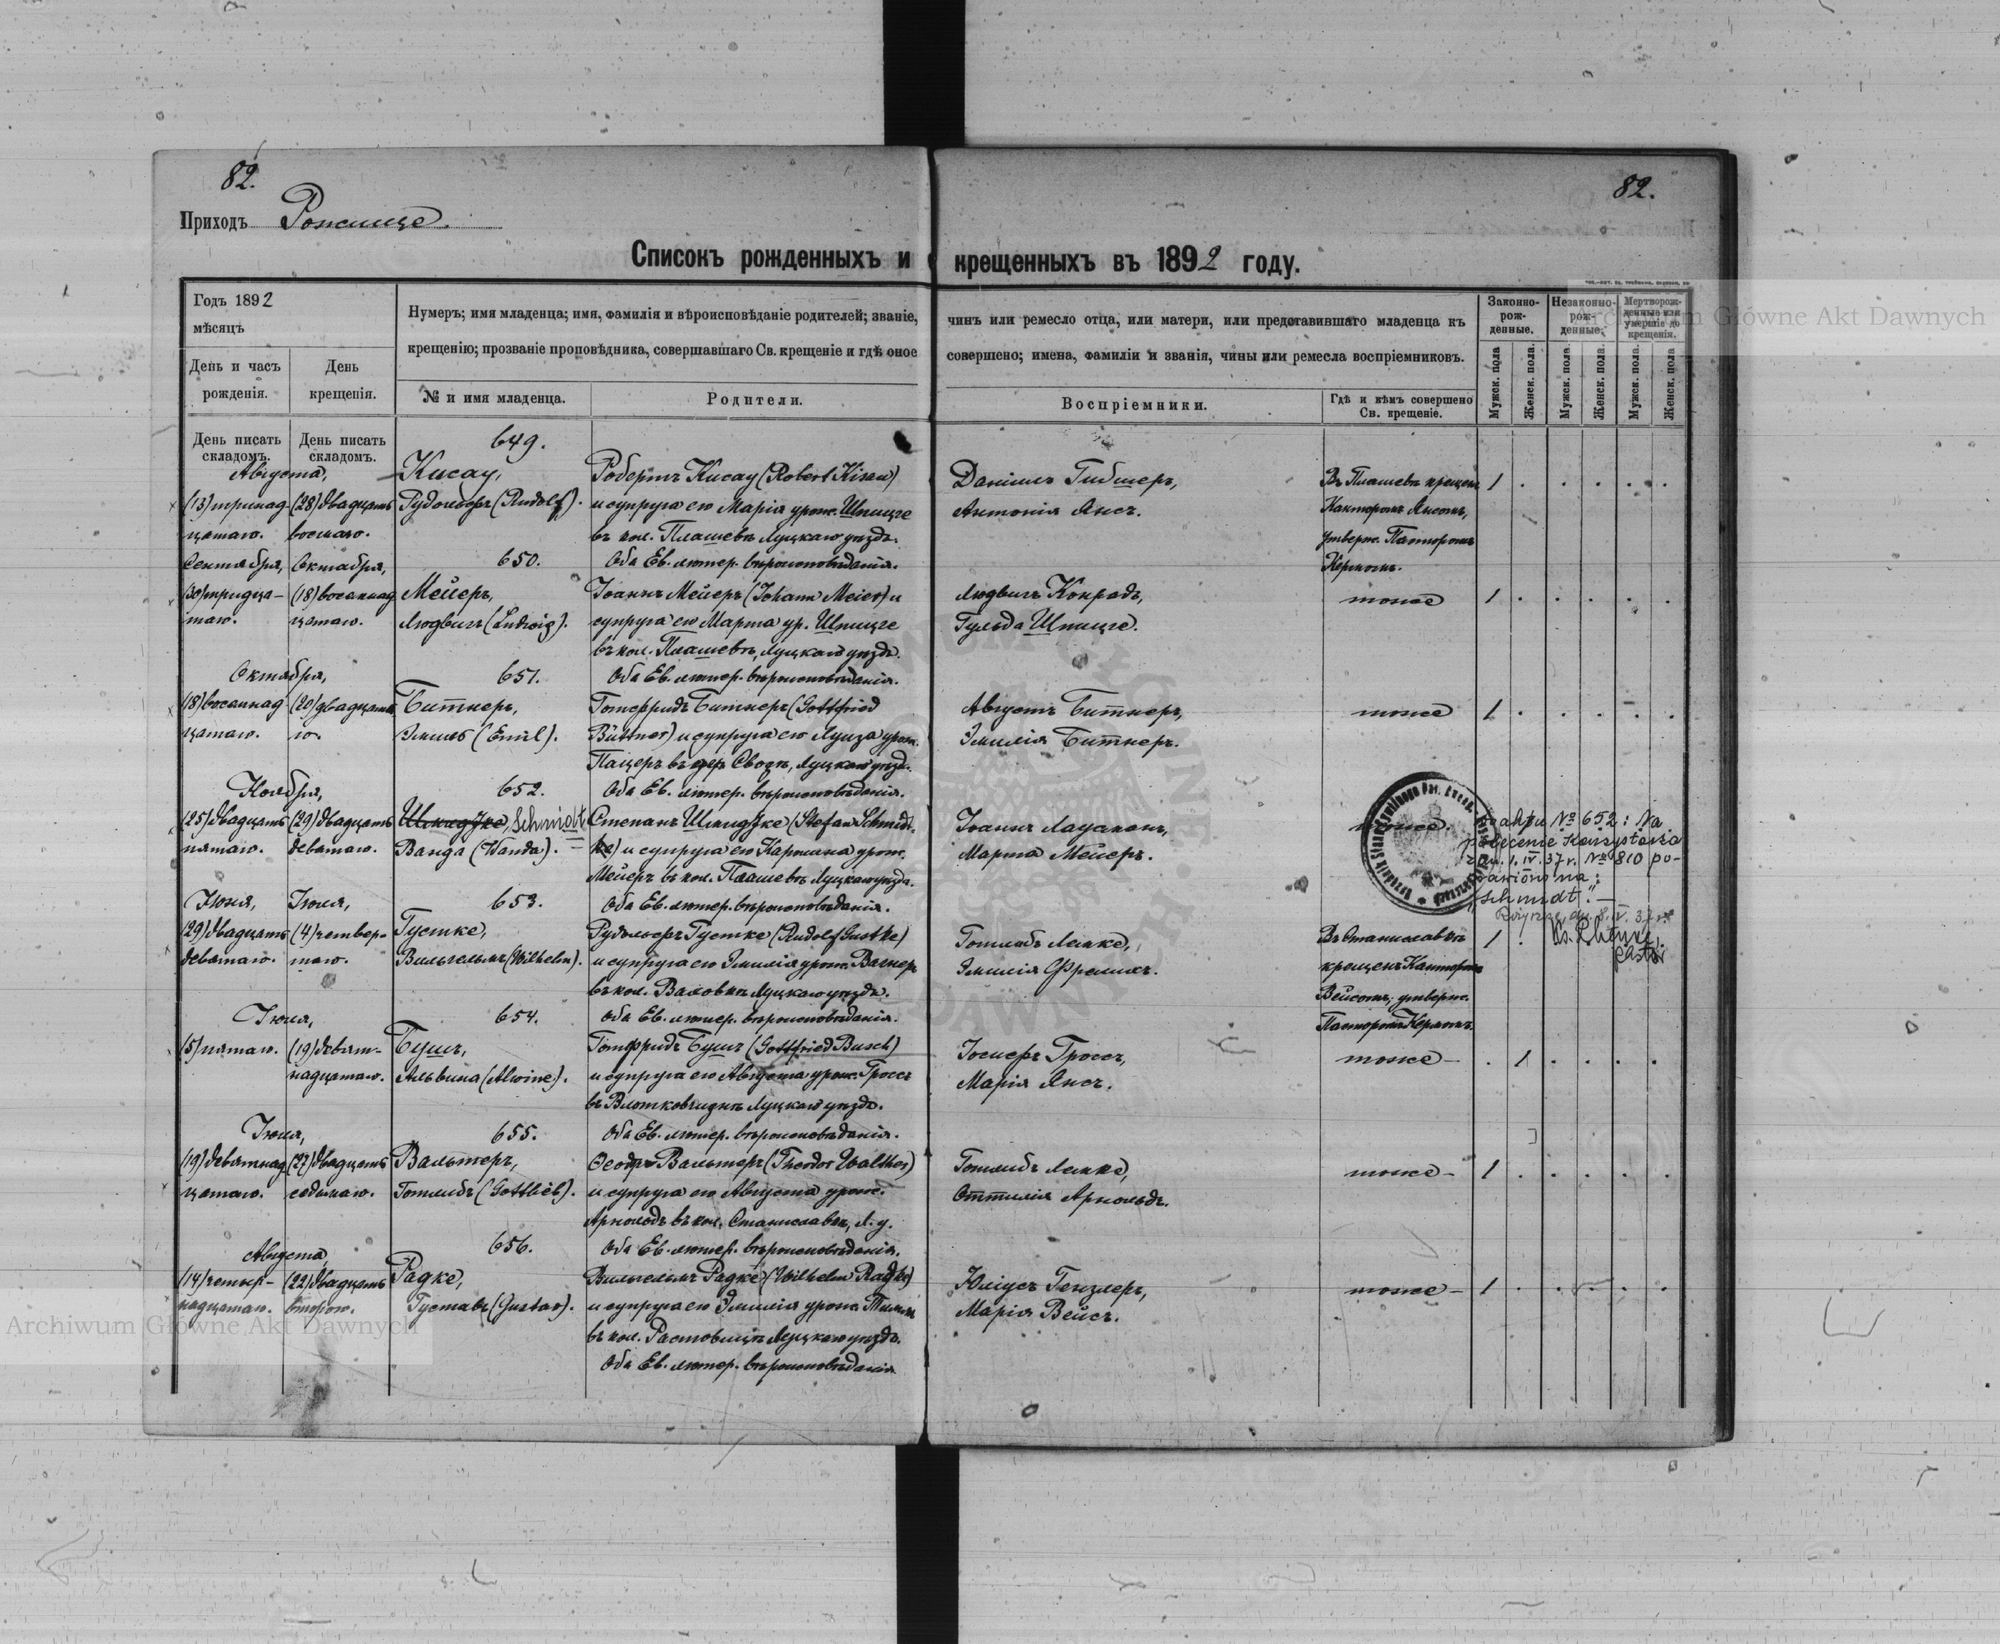 82.
82.
Приходъ Рожище.
Списокъ рожденныхъ и крещенныхъ въ 1892 году.
Годъ 1892
мѣсяцъ
День и часъ рожденія.
День крещенія.
Нумеръ; имя младенца; имя, фамилія и вѣроисповѣданіе родителей; званіе, чинъ или ремесло отца, или матери, или представившаго младенца къ
крещенію; прозваніе проповѣдника, совершавшаго Св. крещеніе и гдѣ оное совершено; имена, фамиліи и званія, чины или ремесла воспріемниковъ.
№ и имя младенца.
Родители.
Воспріемники.
Гдѣ и кѣмъ совершено
Св. крещеніе.
Законно-
рож-
денные.
Незаконно-
рож-
денные.
Мертворож-
денные или
умершіе до
крещенія.
Мужск. пола
Женск. пола.
Мужск. пола.
Женск. пола.
Мужск. пола.
Женск. пола
День писать
складомъ.
День писать
складомъ.
649.
Августа,
(13) тринад-
цатаго.
(28) двадцать
восьмаго.
Кисау,
Рудольфъ (Rudolf).
Робертъ Кисау (Robert Kisau)
и супруга его Марія урож. Шпицге
въ кол. Плашевъ Луцкаго уѣзда.
Оба Ев. лютер. вѣроисповѣданія.
Даніилъ Гибшеръ,
Антонія Янсъ.
Въ Плашевѣ крещенъ
Канторомъ Янсомъ,
утверж. Пасторомъ
Керномъ.
1
650.
Сентября,
Октября,
(30) тридца-
таго.
(18) восемнад
цатаго.
Мейеръ,
Людвигъ (Ludwig).
Іоаннъ Мейеръ (Johann Meier) и
супруга его Марта ур. Шпицге
въ кол. Плашевъ, Луцкаго уѣзда.
Оба Ев. лютер. вѣроисповѣданія.
Людвигъ Конрадъ,
Гульда Шпицге.
тоже
1
651.
Октября,
(18) восемнад
цатаго.
(20) двадцата
го.
Битнеръ,
Эмиль (Emil).
Готфридъ Битнеръ (Gottfried
Büttner) и супруга его Луиза урож.
Пацеръ въ дер. Свозъ, Луцкаго уѣзда.
Оба Ев. лютер. вѣроисповѣданія.
Августъ Битнеръ,
Эмилія Битнеръ.
тоже
1
652.
Ноября,
(25) двадцать
пятаго.
(29) двадцать
девятаго.
Шмидтке, Schmidt
Ванда (Wanda).
Степанъ Шмидтке (Stefan Schmidt-
ke) и супруга его Каролина урож.
Мейеръ въ кол. Плашевъ Луцкаго уѣзда.
Оба Ев. лютер. вѣроисповѣданія.
Іоаннъ
Марта Мейеръ.
тоже.
aktu № 652: Na
polecenie Konsystorza
z dn. 1. IV. 37 r. № 810 po-
prawiono na:
"Schmidt".
Rożyszcze, dn. 8. IV. 37 r.
Pastor
653.
Іюня,
Іюля,
(29) двадцать
девятаго.
(4) четвер-
таго.
Густке,
Вильгельмъ (Wilhelm).
Рудольфъ Густке (Rudolf Gustke)
и супруга его Эмилія урож. Вагнеръ
въ кол. Валовка Луцкаго уѣзда.
Оба Ев. лютер. вѣроисповѣданія.
Готлибъ Лемке,
Эмилія Фрелихъ.
Въ Станиславкѣ
крещенъ Канторомъ
Вейсомъ, утверж.
Пасторомъ Керномъ.
1
654.
Іюля,
(5) пятаго.
(19) девят-
надцатаго.
Бушъ,
Альвина (Alwine).
Готфридъ Бушъ (Gottfried Busch)
и супруга его Августа урож. Гроссъ
въ Луцкаго уѣзда.
Оба Ев. лютер. вѣроисповѣданія.
Іосифъ Гроссъ,
Марія Янсъ.
тоже
1
655.
Іюля,
(19) девятнад
цатаго.
(27) двадцать
седьмаго.
Вальтеръ,
Готлибъ (Gottlieb).
Ѳеодоръ Вальтеръ (Theodor Walther)
и супруга его Августа урож.
Арнольдъ въ кол. Станиславка, Л. у.
Оба Ев. лютер. вѣроисповѣданія.
Готлибъ Лемке,
Оттилія Арнольдъ.
тоже
1
656.
Августа
(14) четыр-
надцатаго.
(22) двадцать
второго.
Радке,
Густавъ (Gustav).
Вильгельмъ Радке (Wilhelm Radke)
и супруга его Эмилія урож.
въ кол. Луцкаго уѣзда.
Оба Ев. лютер. вѣроисповѣданія
Юліусъ Гензлеръ,
Марія Вейсъ.
тоже
1
Archiwum Główne Akt Dawnych
Archiwum Główne Akt Dawnych